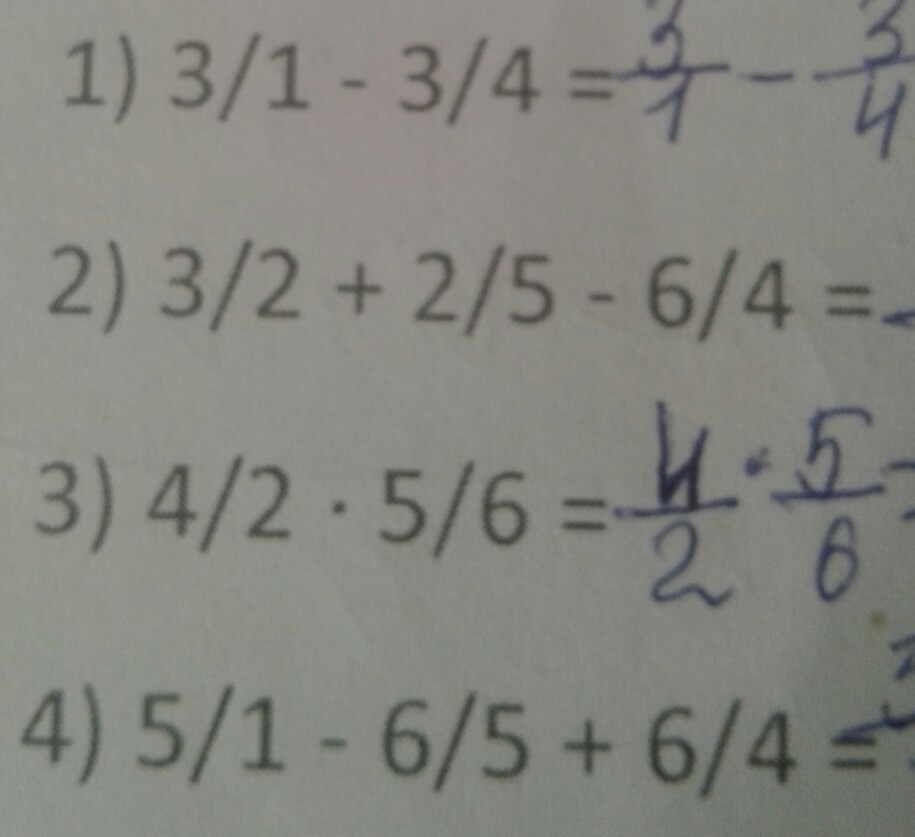 1) 3/1 - 3/4 = 3/1 - 3/4
2) 3/2 + 2/5 - 6/4 =
3) 4/2 · 5/6 = 4/2 · 5/6 =
4) 5/1 - 6/5 + 6/4 =